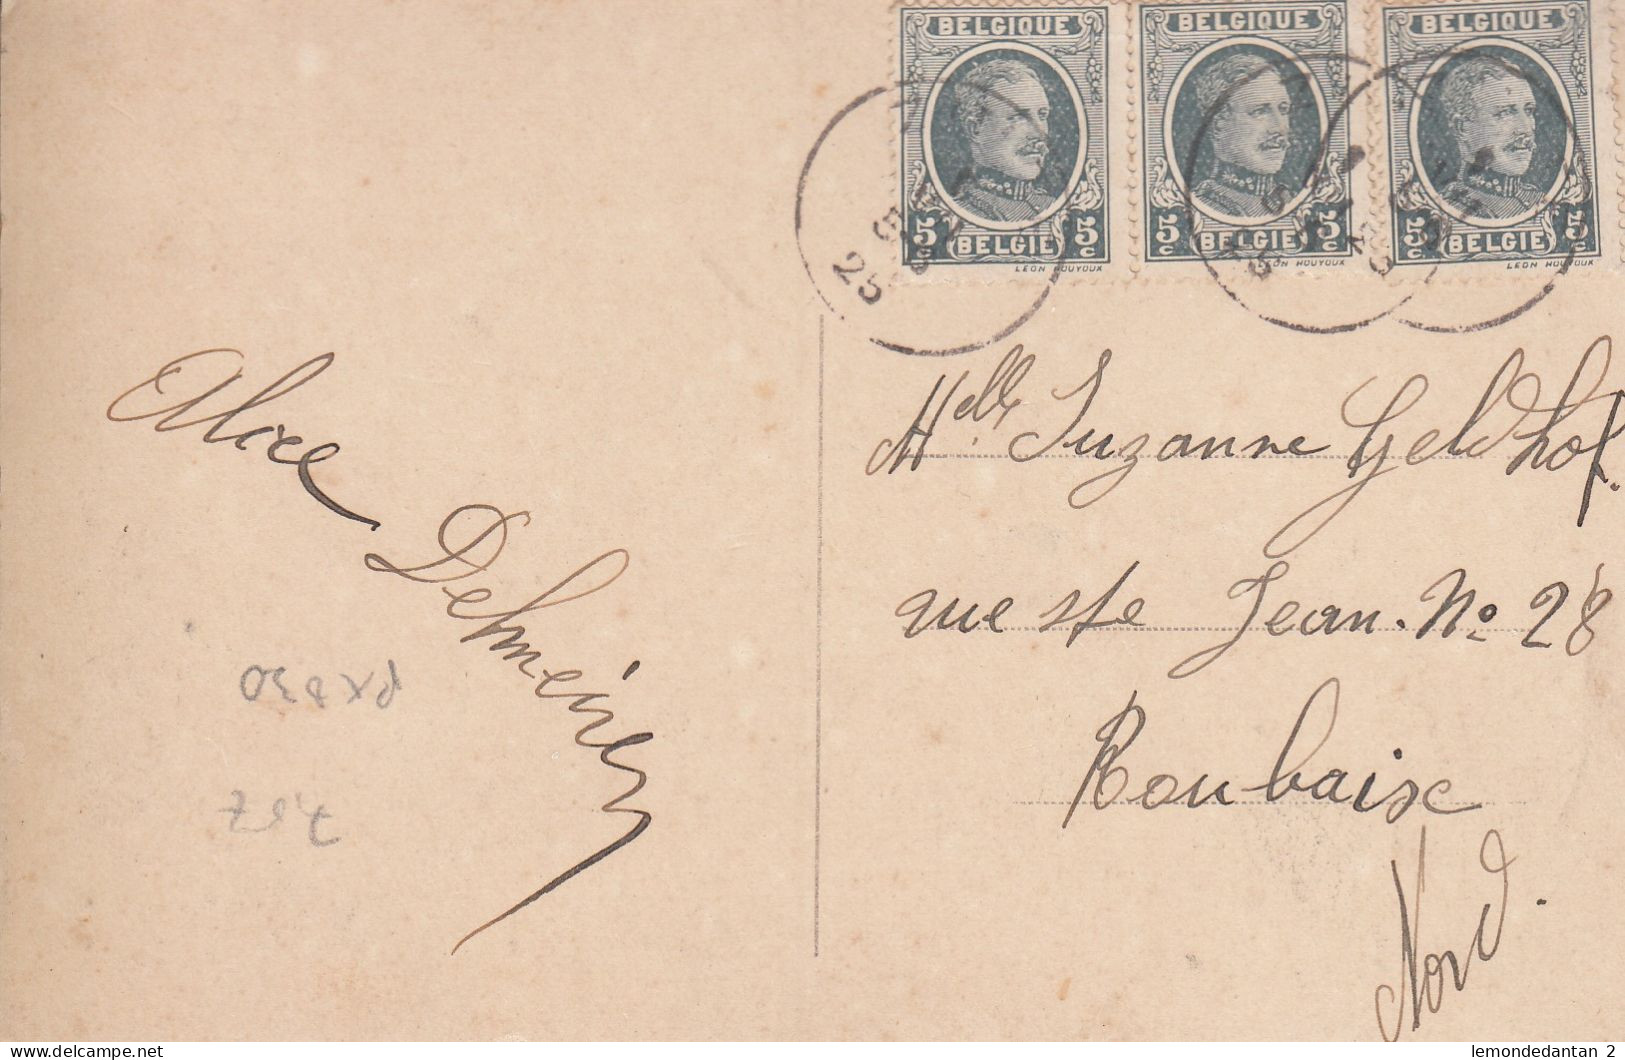 BELGIQUE BELGIQUE BELGIQUE
5c BELGIE 5c 5c BELGIE 5c 5c BELGIE 5c
LEON HOUYOUX LEON HOUYOUX LEON HOUYOUX
25
Alice
Melle Suzanne Geldhof.
rue ste Jean. No 28
Roubaix
Nord.
lemondedantan 2